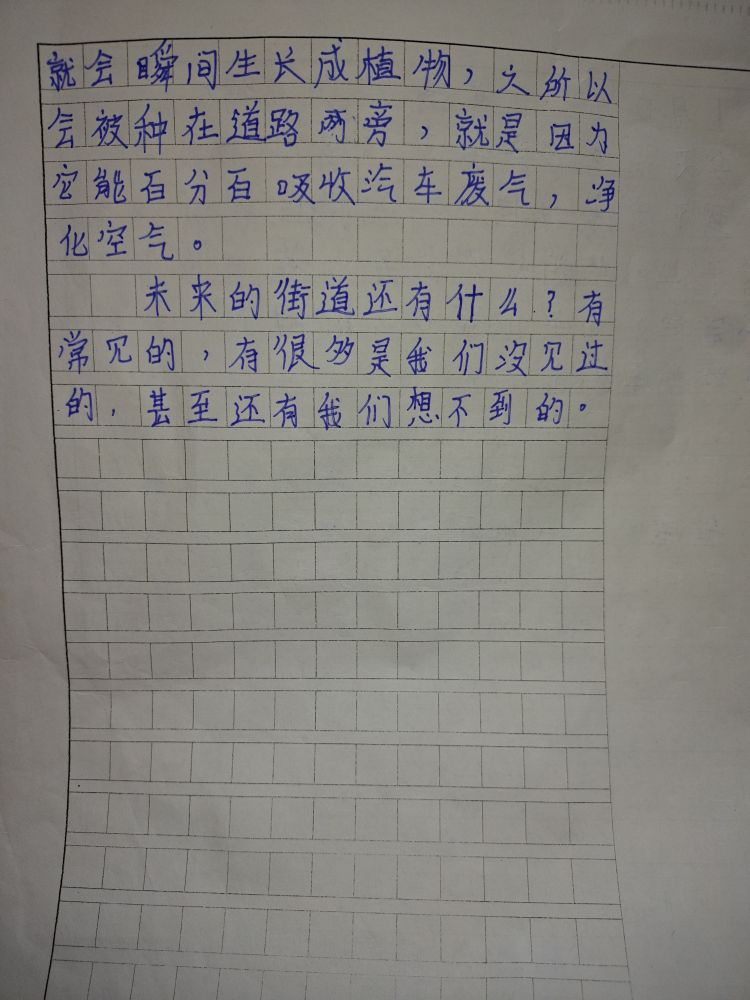 就会瞬间生长成植物，之所以
会被种在道路两旁，就是因为
它能百分百吸收汽车废气，净
化空气。
未来的街道还有什么？有
常见的，有很多是我们没见过
的，甚至还有我们想不到的。